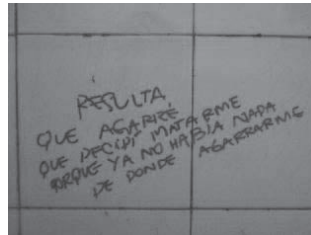 RESULTA
QUE AGARRÉ
QUE DECIDÍ MATARME
PORQUE YA NO HABÍA NADA
DE DONDE AGARRARME